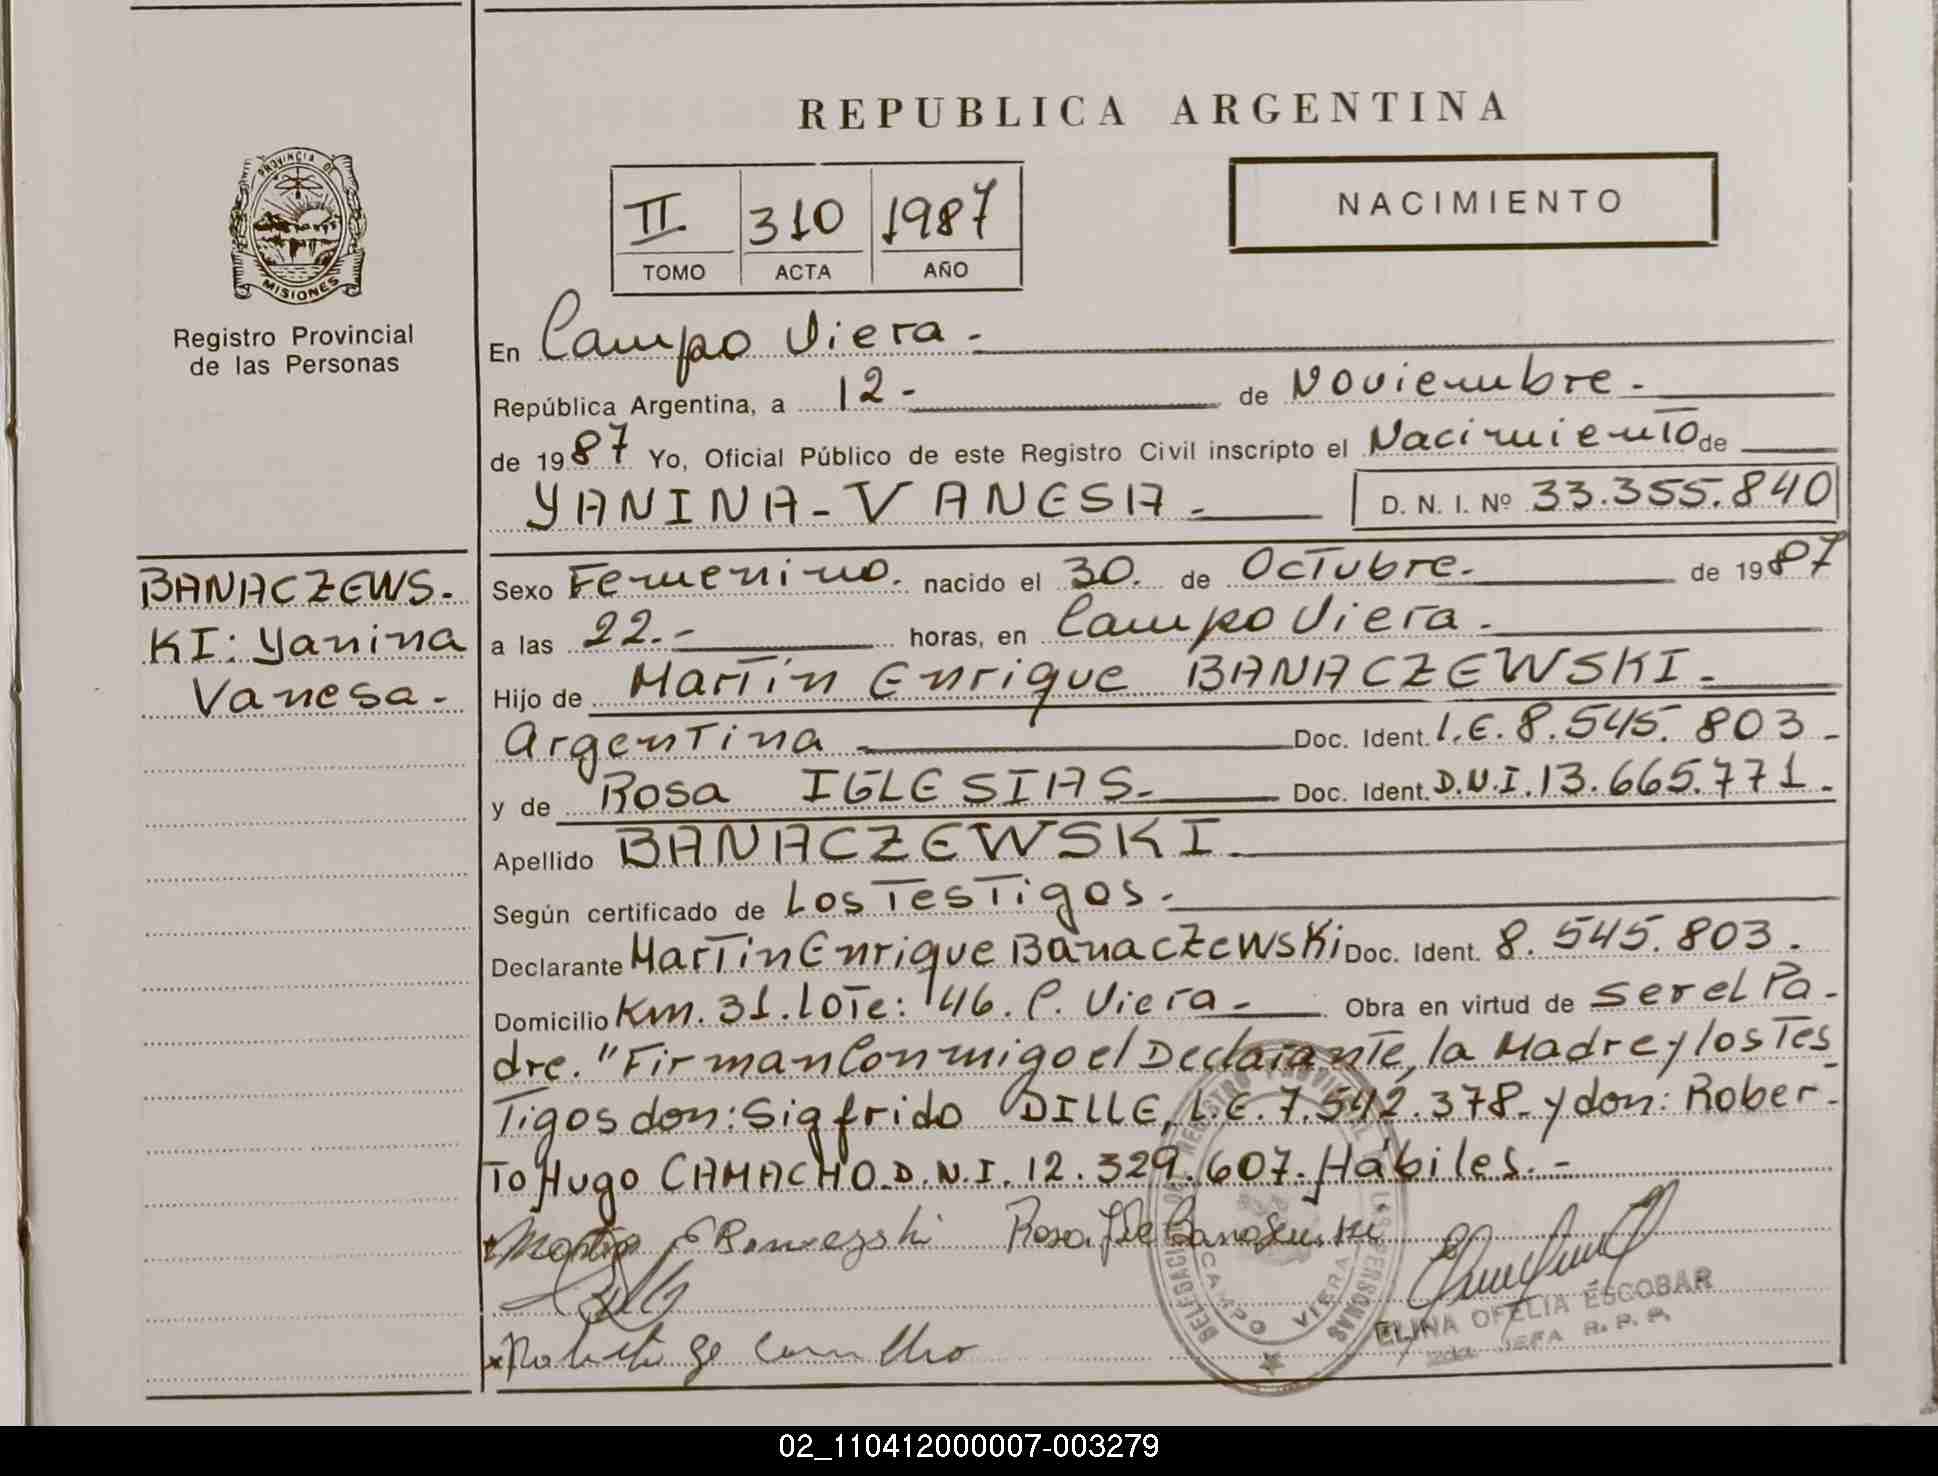 REPUBLICA ARGENTINA
PROVINCIA DE
MISIONES
Registro Provincial
de las Personas
II 310 1987
TOMO ACTA AÑO
NACIMIENTO
En Campo Viera.-
República Argentina, a 12.- de Noviembre.-
de 1987 Yo, Oficial Público de este Registro Civil inscripto el Nacimiento de
YANINA-VANESA.- D. N. I. Nº 33.355.840
BANACZEWS.-
KI: Yanina
Vanesa.-
Sexo Femenino. nacido el 30. de Octubre.- de 1987
a las 22.- horas, en Campo Viera.-
Hijo de Martín Enrique BANACZEWSKI.-
Argentina Doc. Ident. L.E. 8.545.803-
y de Rosa IGLESIAS.- Doc. Ident. D.N.I. 13.665.771.-
Apellido BANACZEWSKI.-
Según certificado de Los Testigos.-
Declarante Martín Enrique Banaczewski Doc. Ident. 8.545.803.-
Domicilio Km. 31. lote: 146. C. Viera.- Obra en virtud de ser el Pa-
dre. "Firman Conmigo el Declarante, la Madre y los Tes
Tigos don: Sigfrido DILLE, L.E. 7.542.378- y don: Rober-
To Hugo CAMACHO. D.N.I. 12.329.607. Hábiles.-
Rosa
DELEGACION REGISTRO PROVINCIAL DE LAS PERSONAS
CAMPO VIERA
ELINA OFELIA ESCOBAR
JEFA R. P. P.
02_110412000007-003279